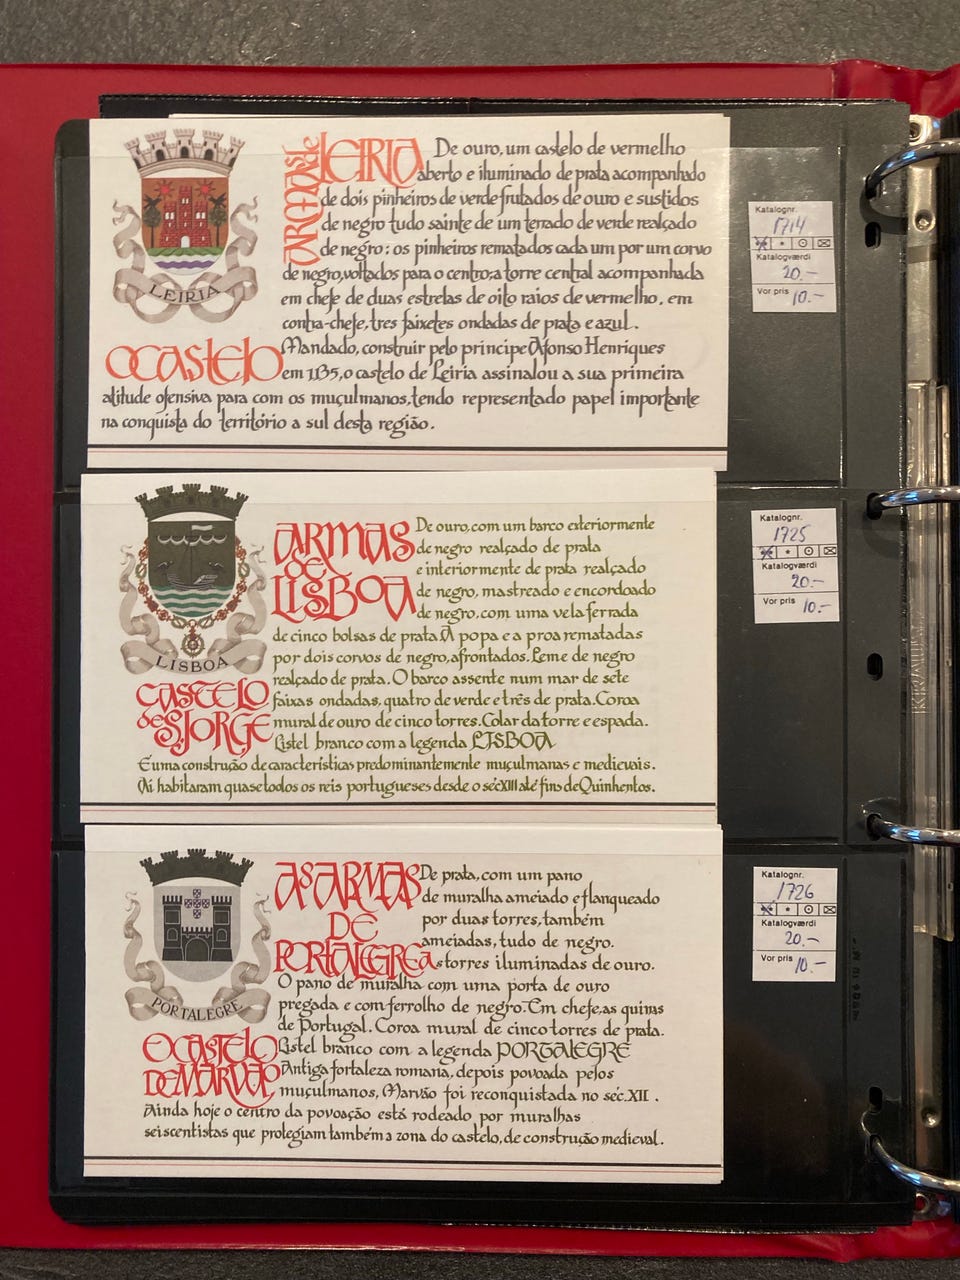 ARMAS de LEIRIA
De ouro, um castelo de vermelho
aberto e iluminado de prata acompanhado
de dois pinheiros de verde frutados de ouro e sustidos
de negro tudo sainte de um terrado de verde realçado
de negro: os pinheiros rematados cada um por um corvo
de negro, voltados para o centro; a torre central acompanhada
em chefe de duas estrelas de oito raios de vermelho, em
contra-chefe, tres faixetes ondadas de prata e azul.
LEIRIA
O CASTELO
Mandado, construir pelo principe Afonso Henriques
em 1135, o castelo de Leiria assinalou a sua primeira
atitude ofensiva para com os muçulmanos, tendo representado papel importante
na conquista do território a sul desta região.
Katalognr.
1714
Katalogværdi
20.-
Vor pris
10.-
ARMAS
DE
LISBOA
De ouro, com um barco exteriormente
de negro realçado de prata
e interiormente de prata realçado
de negro, mastreado e encordoado
de negro, com uma vela ferrada
de cinco bolsas de prata. A popa e a proa rematadas
por dois corvos de negro, afrontados. Leme de negro
realçado de prata. O barco assente num mar de sete
faixas ondadas, quatro de verde e três de prata. Coroa
mural de ouro de cinco torres. Colar da torre e espada.
Listel branco com a legenda LISBOA
LISBOA
CASTELO
de S. JORGE
É uma construção de características predominantemente muçulmanas e medievais.
Aí habitaram quase todos os reis portugueses desde o séc XIII até fins de Quinhentos.
Katalognr.
1725
Katalogværdi
20.-
Vor pris
10.-
AS ARMAS
DE
PORTALEGRE
De prata, com um pano
de muralha ameiado e flanqueado
por duas torres, também
ameiadas, tudo de negro.
As torres iluminadas de ouro.
O pano de muralha com uma porta de ouro
pregada e com ferrolho de negro. Em chefe, as quinas
de Portugal. Coroa mural de cinco torres de prata.
Listel branco com a legenda PORTALEGRE
PORTALEGRE
O CASTELO
DE MARVÃO
Antiga fortaleza romana, depois povoada pelos
muçulmanos, Marvão foi reconquistada no séc. XII.
Ainda hoje o centro da povoação está rodeado por muralhas
seiscentistas que protegiam também a zona do castelo, de construção medieval.
Katalognr.
1726
Katalogværdi
20.-
Vor pris
10.-